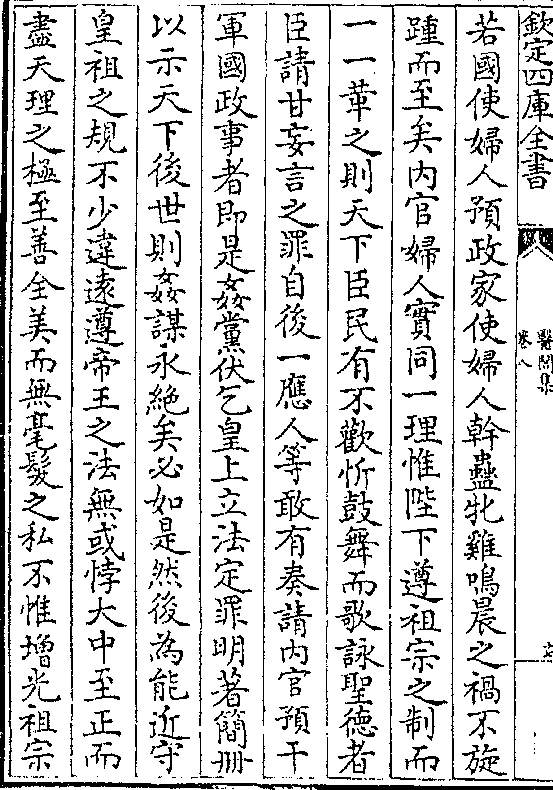 欽定四庫全書
醫閭集
卷八
若國使婦人預政家使婦人幹蠱牝雞鳴晨之禍不旋
踵而至矣内官婦人實同一理惟陛下遵祖宗之制而
一一革之則天下臣民有不歡忻鼓舞而歌詠聖德者
臣請甘妄言之罪自後一應人等敢有奏請内官預干
軍國政事者即是姦黨伏乞皇上立法定罪明著簡冊
以示天下後世則姦謀永絶矣必如是然後為能近守
皇祖之規不少違逺遵帝王之法無或悖大中至正而
盡天理之極至善全美而無毫髮之私不惟增光祖宗